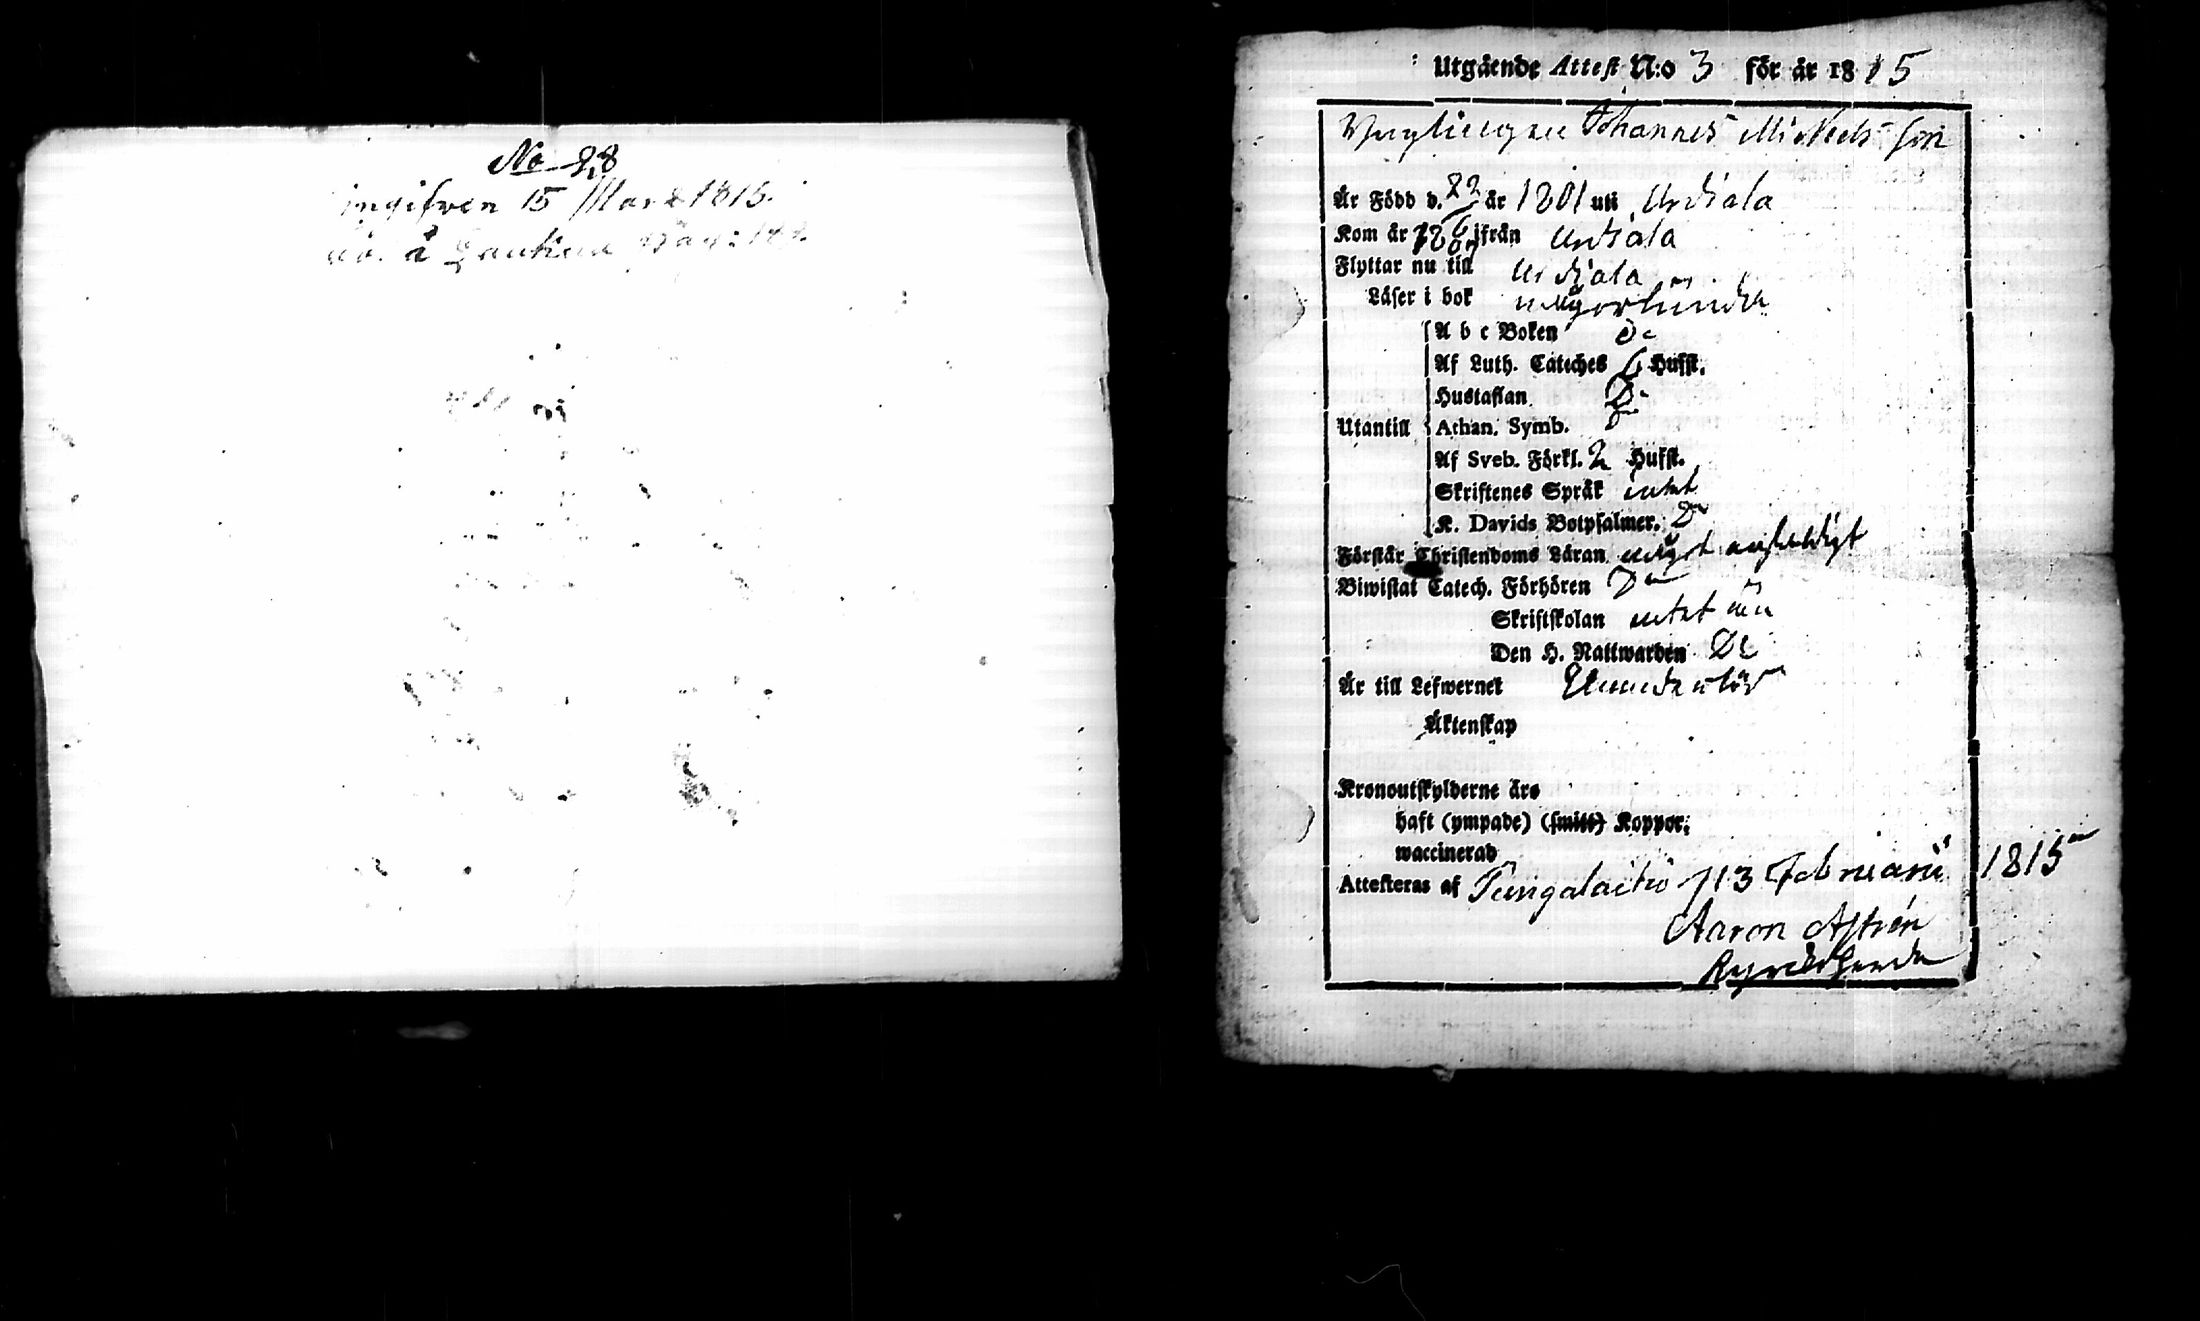 No 28
ingifven 15 Mars 1815.
å
Utgående Attest N:o 3 för år 1815
Ynglingen Johannes Mickels son
Är Född d. 22 år 1801 uti Urdiala
Kom år ifrån Urdiala
Flyttar nu till Urdiala
Läser i bok någorlunda
A b c Boken do
Af Luth. Cateches 6 Hufst.
Hustaflan Do
Utantill Athan. Symb. Do
Af Sveb. Förkl. 2 Hufst.
Skriftenes Språk intet
K. Davids Botpsalmer. Do
Förstår Christendoms Läran något
Biwistat Catech. Förhören
Skriftskolan intet än
Den H. Nattwarden Do
Är till Lefwernet
Äktenskap
Kronoutskylderne äro
haft (ympade) (smitt) Koppor.
waccinerad
Attesteras af Pungalaitio d 13 Februarii 1815
Aaron Astrén